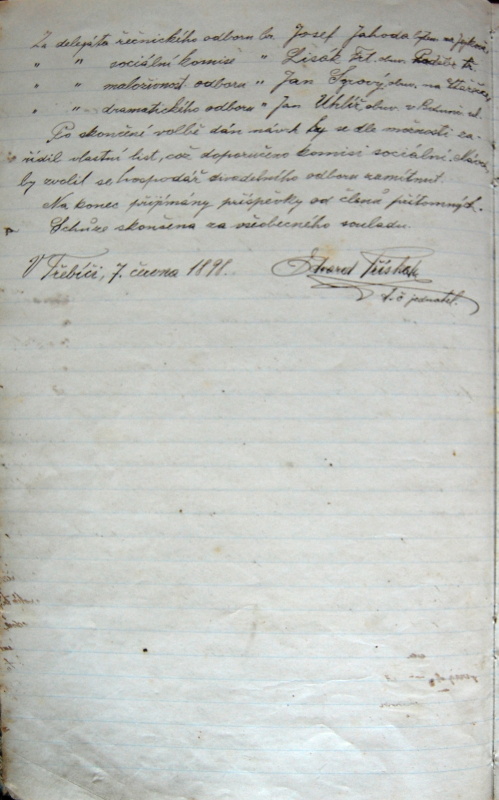 Za delegáta řečnického odboru br. Josef Jahoda
" " sociální komisi " Lisák Frt.
" " maloživnost. odboru " Jan Syrový obuv. na
" " dramatického odboru " Jan Uhlíř obuv. v
Po skončení volbě dán návrh by se dle možnosti za-
řídil vlastní list, což doporučeno komisi sociální. Návrh
by zvolit se hospodář divadelního odboru zamítnut.
Na konec přijímány příspěvky od členů přítomných.
Schůze skončena za všeobecného souladu.
V Třebíči, 7. června 1898.
Edvard
t. č. jednatel.